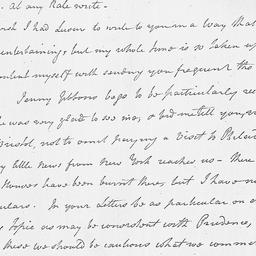 . At any Rate write -
wish I had Leisure to write to you in a Way that
entertaining, but my whole time is so taken up
content myself with sending you frequent the
Jenny Gibbons begs to be particularly re
was very glad to see me, & bid me tell you, you
Bristol, not to omit paying a Visit to
little News from New York reaches us - there
Houses have been burnt there, but I have n
culars. In your Letters be as particular on e
Topic as may be consistent with Prudence,
these we should be cautious what we comm